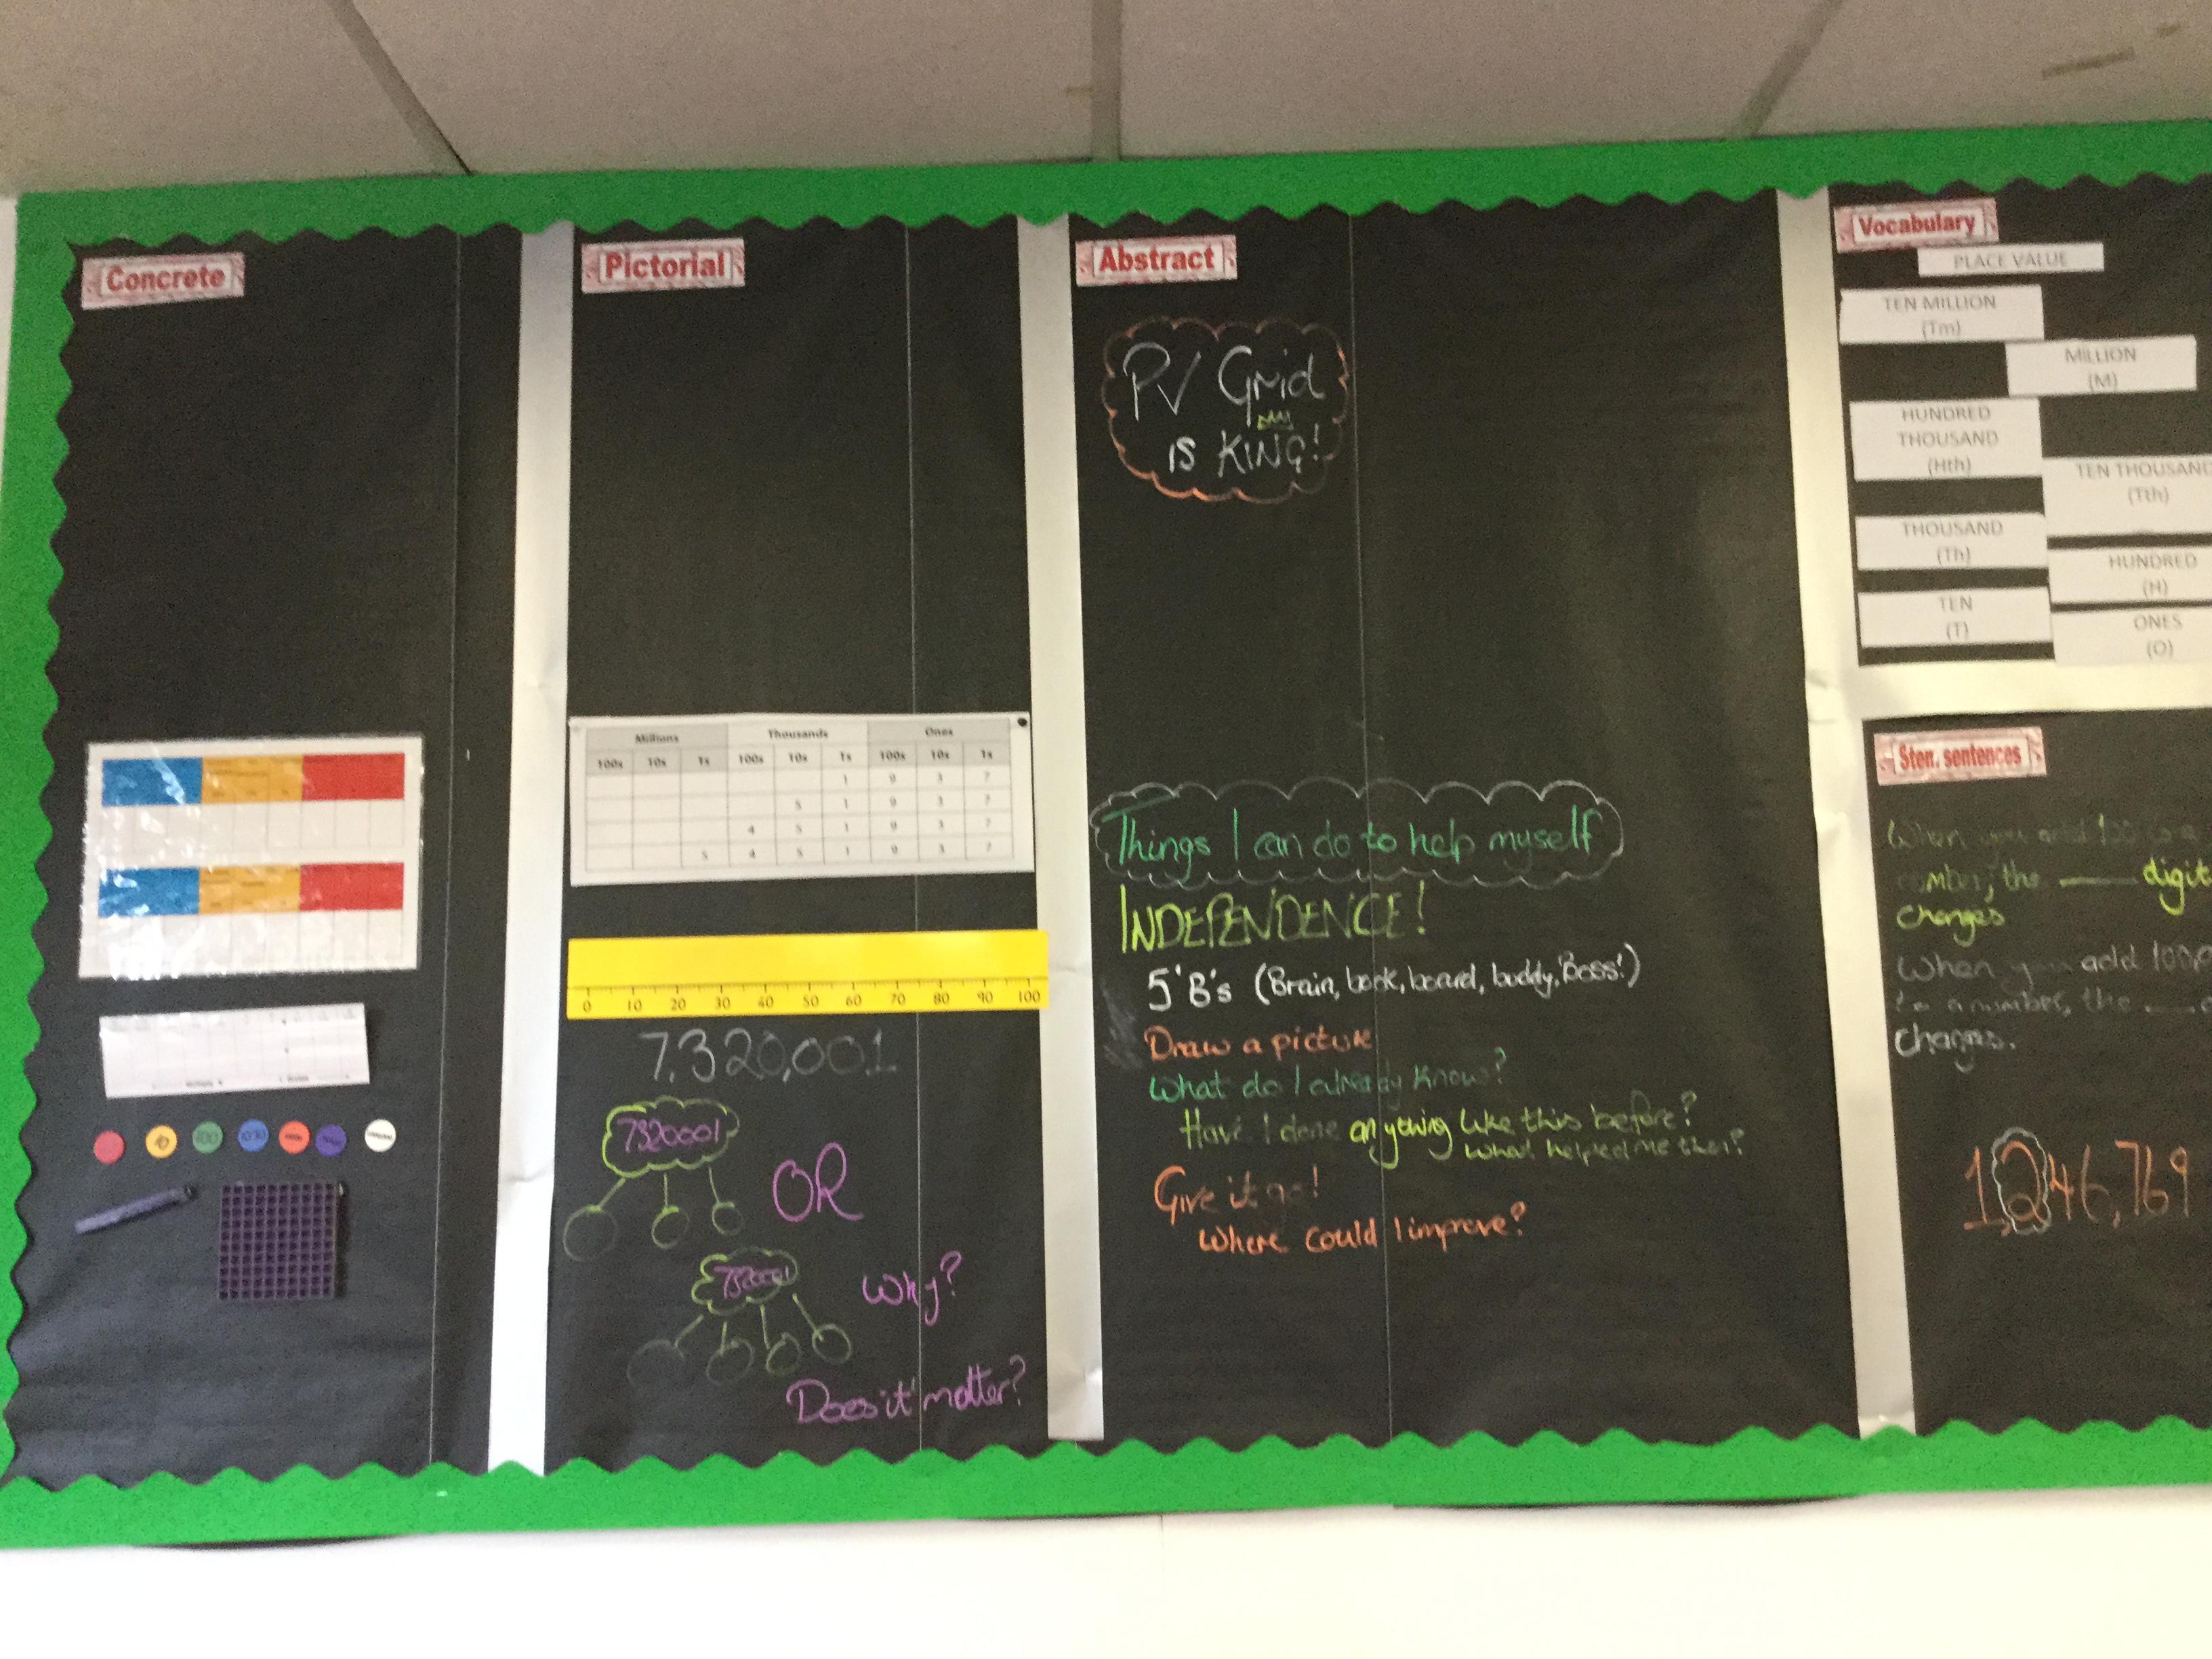 Concrete
10
100
Pictorial
Millions Thousands Ones
100s 10s 1s 100s 10s 1s 100s 10s 1s
1 9 3 7
5 1 9 3 7
4 5 1 9 3 7
5 4 5 1 9 3 7
0 10 20 30 40 50 60 70 80 90 100
7,320,001
7320001
OR
7320001
Why?
Does it matter?
Abstract
PV Grid
is KING!
Things I can do to help myself
INDEPENDENCE!
5 'B's (Brain, book, board, buddy, 'Boss'!)
Draw a picture
What do I already know?
Have I done anything like this before?
What helped me then?
Give it go!
Where could I improve?
Vocabulary
PLACE VALUE
TEN MILLION
(Tm)
MILLION
(M)
HUNDRED
THOUSAND
(Hth)
TEN THOUSAND
(Tth)
THOUSAND
(Th)
HUNDRED
(H)
TEN
(T)
ONES
(O)
Stem sentences
When you add 100 to a
number, the ____ digit
changes
When you add 100,0
to a number, the ____
changes.
1,246,769